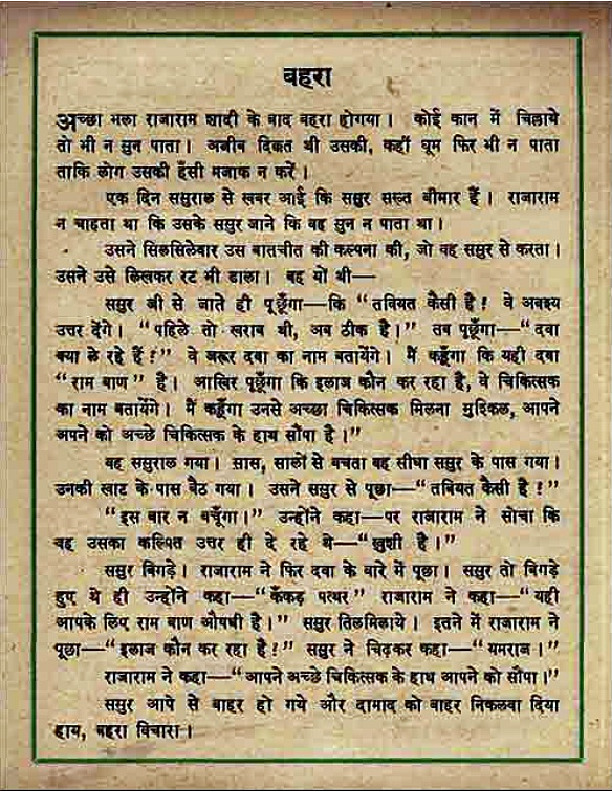 बहरा
अच्छा भला राजाराम शादी के बाद बहरा होगया। कोई कान में चिल्लाये
तो भी न सुन पाता। अजीब दिक्कत थी उसकी, कहीं घूम फिर भी न पाता
ताकि लोग उसकी हँसी मजाक न करें।
एक दिन ससुराल से खबर आई कि ससुर सख्त बीमार हैं। राजाराम
न चाहता था कि उसके ससुर जाने कि वह सुन न पाता था।
उसने सिलसिलेवार उस बातचीत की कल्पना की, जो वह ससुर से करता।
उसने उसे लिखकर रट भी डाला। वह यों थी—
ससुर जी से जाते ही पूछूँगा—कि "तबियत कैसी है? वे अवश्य
उत्तर देंगे। "पहिले तो खराब थी, अब ठीक है।" तब पूछूँगा—"दवा
क्या ले रहे हैं?" वे जरूर दवा का नाम बतायेंगे। मैं कहूँगा कि यही दवा
"राम बाण" है। आखिर पूछूँगा कि इलाज कौन कर रहा है, वे चिकित्सक
का नाम बतायेंगे। मैं कहूँगा उनसे अच्छा चिकित्सक मिलना मुश्किल, आपने
अपने को अच्छे चिकित्सक के हाथ सौंपा है।"
वह ससुराल गया। सास, सालों से बचता वह सीधा ससुर के पास गया।
उनकी खाट के पास बैठ गया। उसने ससुर से पूछा—"तबियत कैसी है?"
"इस बार न बचूँगा।" उन्होंने कहा—पर राजाराम ने सोचा कि
वह उसका कल्पित उत्तर ही दे रहे थे—"खुशी है।"
ससुर बिगड़े। राजाराम ने फिर दवा के बारे में पूछा। ससुर तो बिगड़े
हुए थे ही उन्होंने कहा—"कँकड़ पत्थर" राजाराम ने कहा—"यही
आपके लिए राम बाण औषधी है।" ससुर तिलमिलाये। इतने में राजाराम ने
पूछा—"इलाज कौन कर रहा है?" ससुर ने चिढ़कर कहा—"यमराज।"
राजाराम ने कहा—"आपने अच्छे चिकित्सक के हाथ आपने को सौंपा।"
ससुर आपे से बाहर हो गये और दामाद को बाहर निकलवा दिया
हाय, बहरा बिचारा।